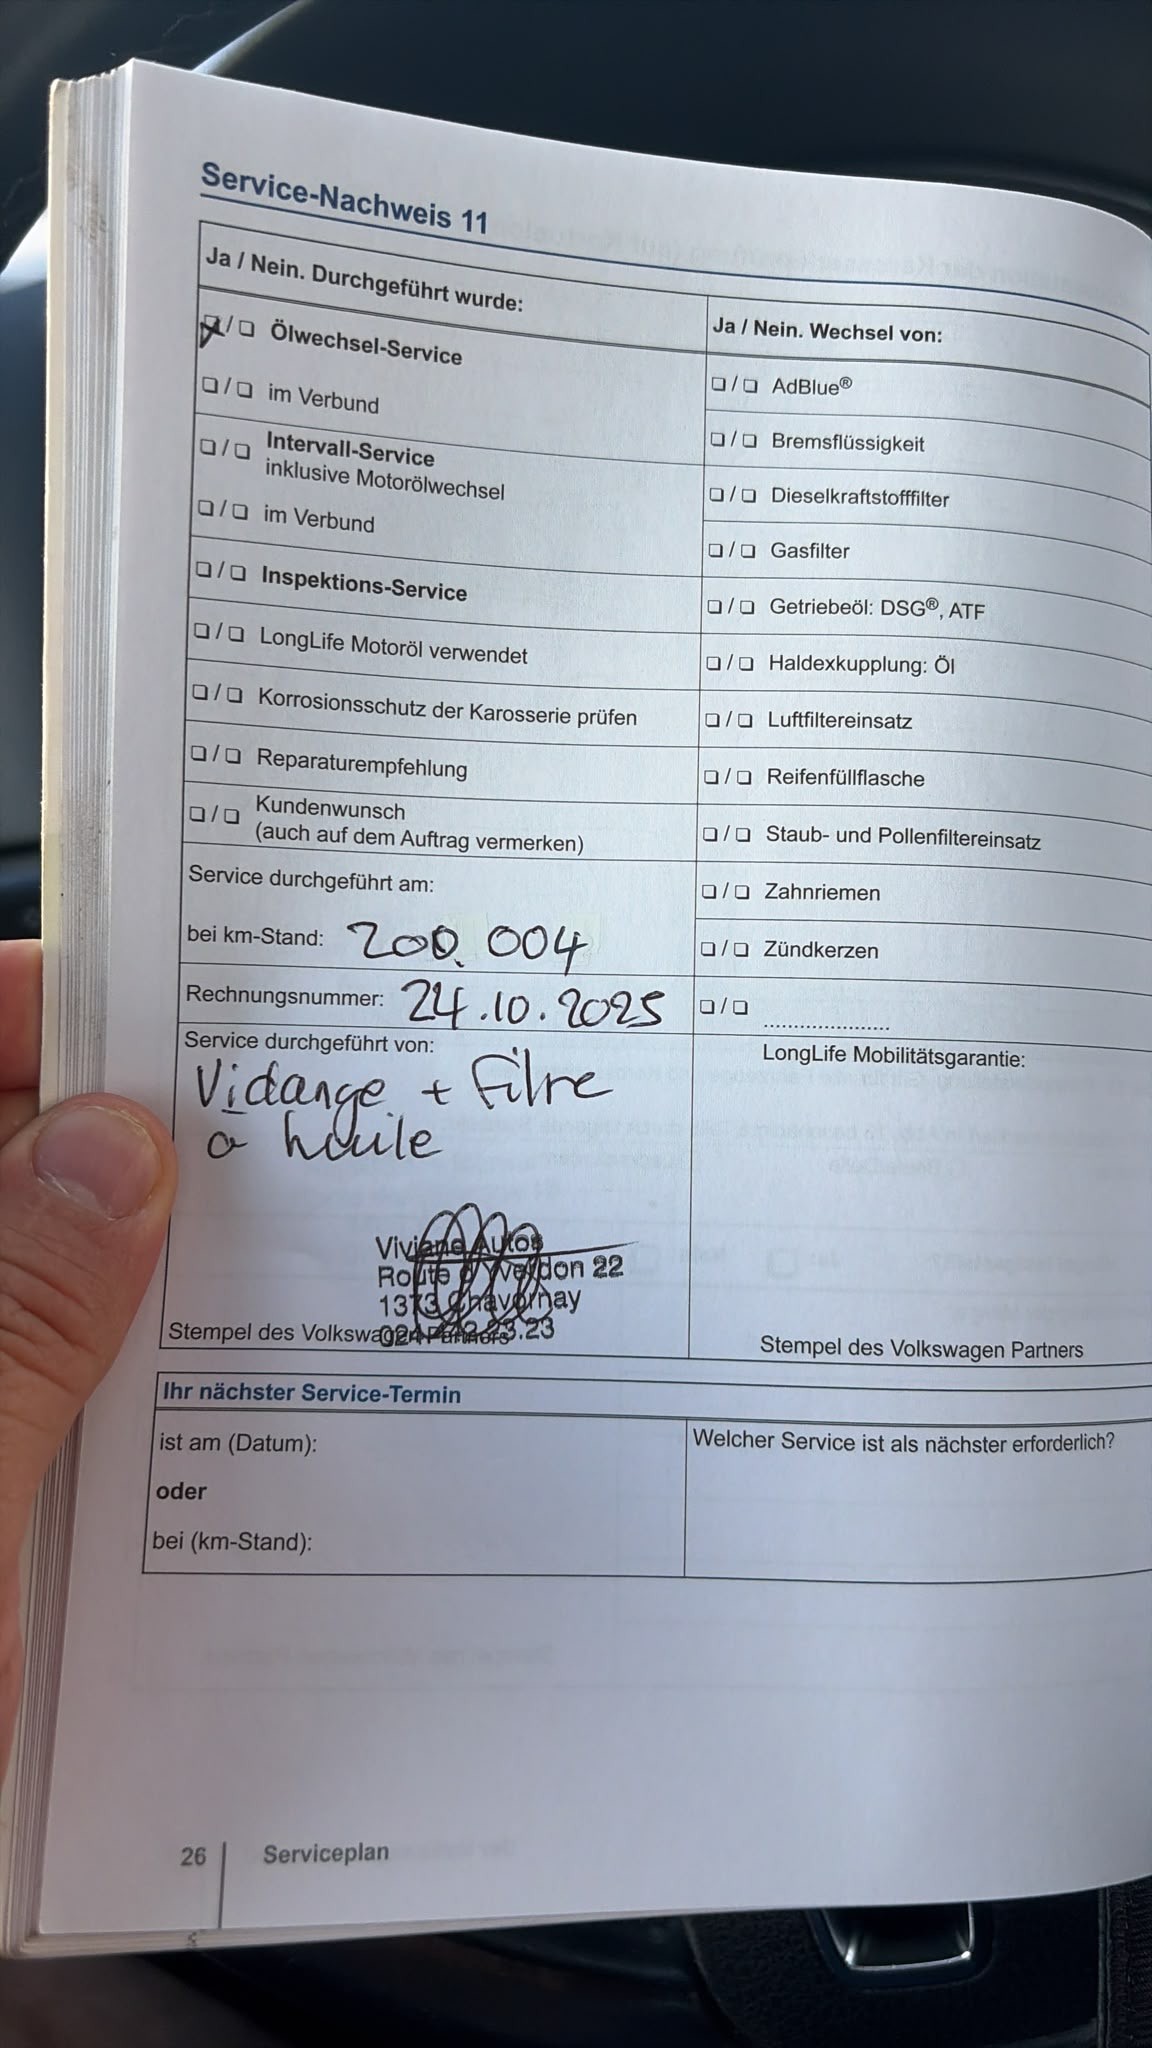 Service-Nachweis 11
Ja / Nein. Durchgeführt wurde:
❑ / ❑ Ölwechsel-Service
❑ / ❑ im Verbund
❑ / ❑ Intervall-Service
inklusive Motorölwechsel
❑ / ❑ im Verbund
❑ / ❑ Inspektions-Service
❑ / ❑ LongLife Motoröl verwendet
❑ / ❑ Korrosionsschutz der Karosserie prüfen
❑ / ❑ Reparaturempfehlung
❑ / ❑ Kundenwunsch
(auch auf dem Auftrag vermerken)
Service durchgeführt am:
bei km-Stand: 200.004
Rechnungsnummer: 24.10.2025
Service durchgeführt von:
Vidange + Filre
a huile
Viviane Autos
Route d'Yverdon 22
1373 Chavornay
Stempel des Volkswagen Partners
Ja / Nein. Wechsel von:
❑ / ❑ AdBlue®
❑ / ❑ Bremsflüssigkeit
❑ / ❑ Dieselkraftstofffilter
❑ / ❑ Gasfilter
❑ / ❑ Getriebeöl: DSG®, ATF
❑ / ❑ Haldexkupplung: Öl
❑ / ❑ Luftfiltereinsatz
❑ / ❑ Reifenfüllflasche
❑ / ❑ Staub- und Pollenfiltereinsatz
❑ / ❑ Zahnriemen
❑ / ❑ Zündkerzen
❑ / ❑ .....................
LongLife Mobilitätsgarantie:
Stempel des Volkswagen Partners
Ihr nächster Service-Termin
ist am (Datum):
oder
bei (km-Stand):
Welcher Service ist als nächster erforderlich?
26 Serviceplan